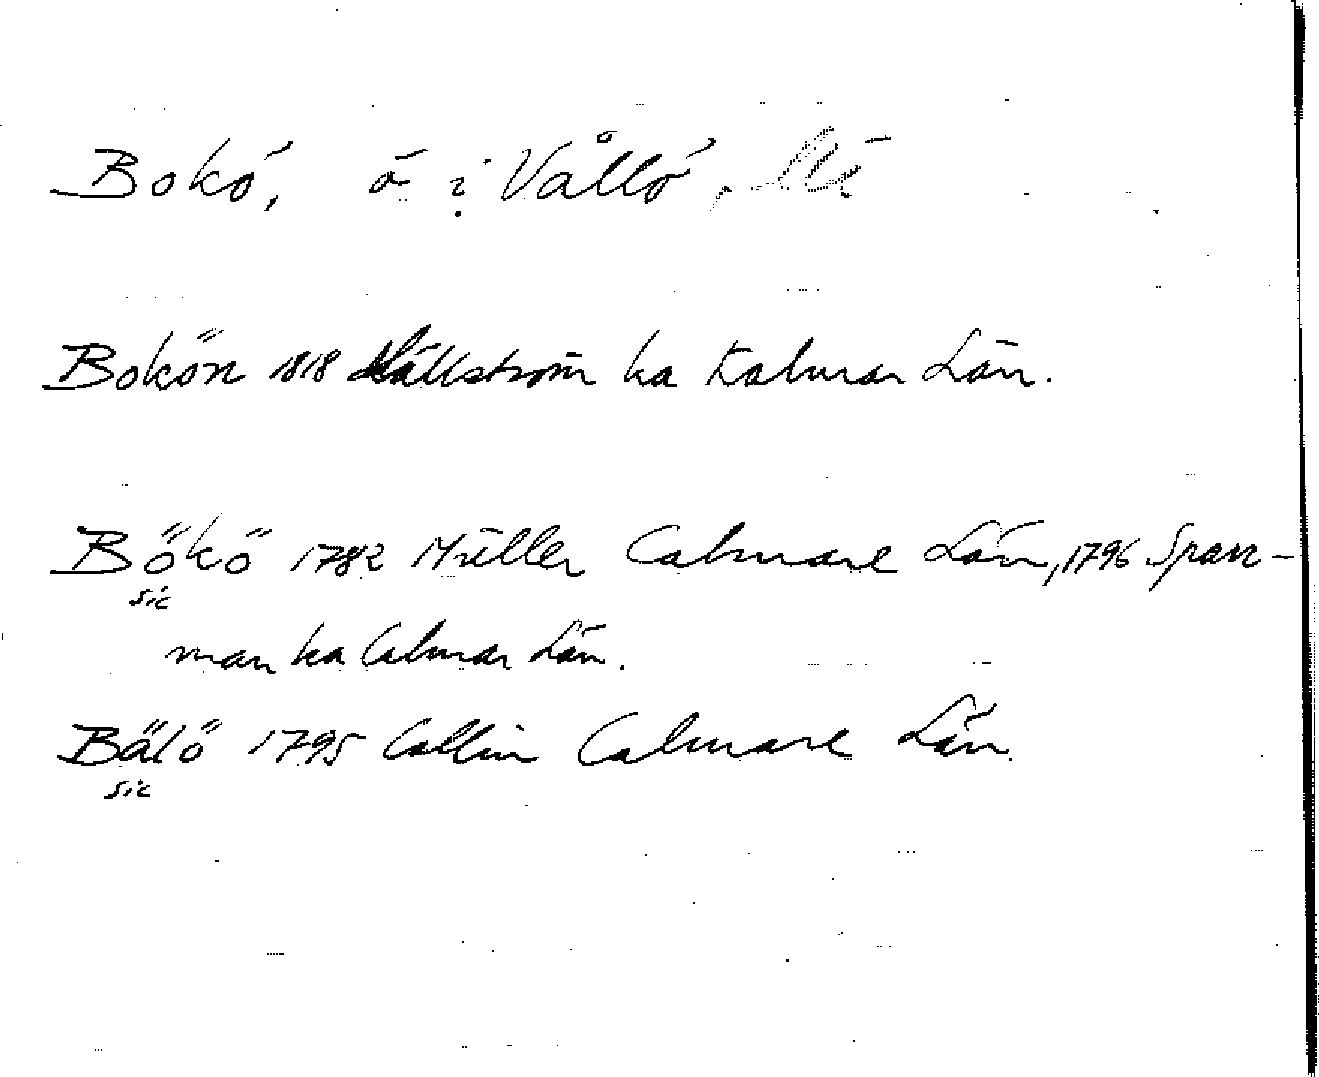 Bokö, ö i Vållö,
Bokön 1818 Hällström ka Kalmar Län.
Bökö 1782 Müller Calmare Län, 1796 Spar-
sic
man ka Calmar Län.
Bälö 1795 Collin Calmare Län
sic